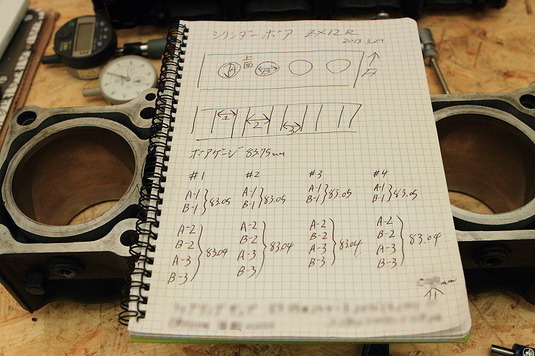 シリンダーボア ZX12R
2013.3.29
上面
A
B
1
2
3
ボアゲージ 83.75mm
#1 #2 #3 #4
A-1 B-1 } 83.05 A-1 B-1 } 83.05 A-1 B-1 } 83.05 A-1 B-1 } 83.05
A-2 B-2 A-3 B-3 } 83.04 A-2 B-2 A-3 B-3 } 83.04 A-2 B-2 A-3 B-3 } 83.04 A-2 B-2 A-3 B-3 } 83.04
mm